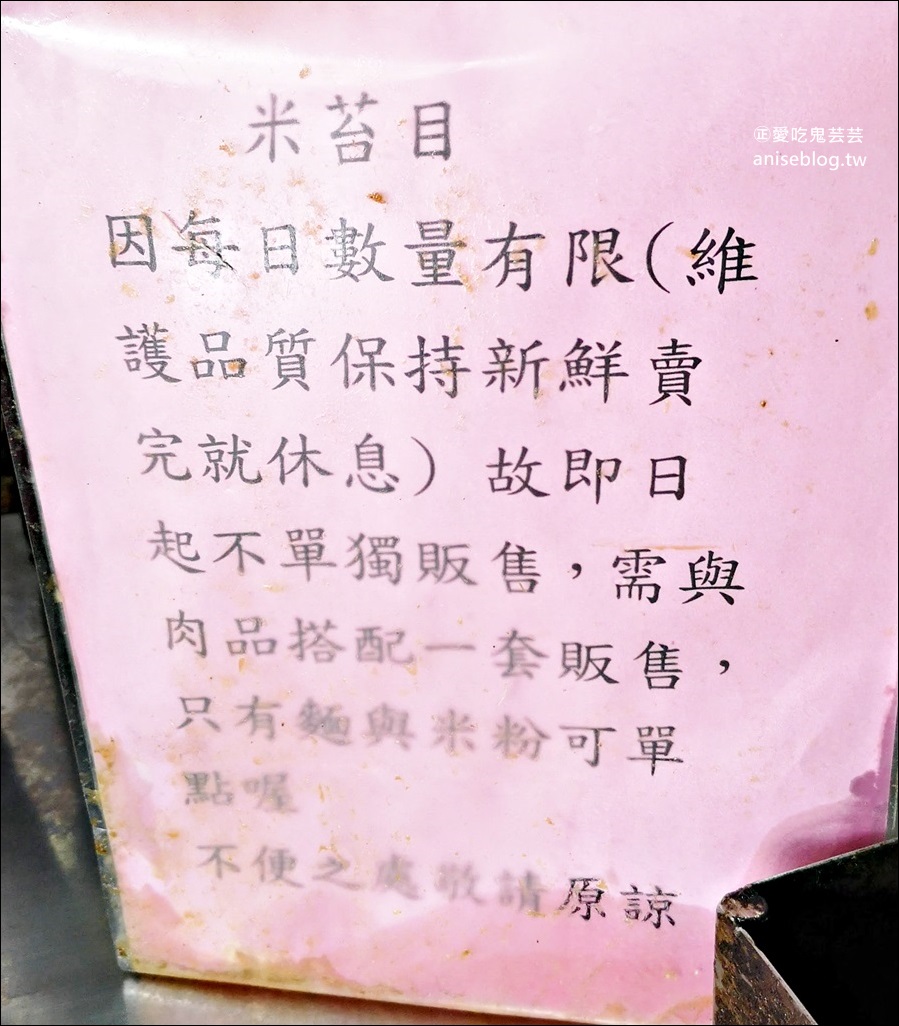 米苔目
㊣愛吃鬼芸芸
aniseblog.tw
因每日數量有限(維
護品質保持新鮮賣
完就休息) 故即日
起不單獨販售，需與
肉品搭配一套販售，
只有麵與米粉可單
點喔
不便之處敬請原諒